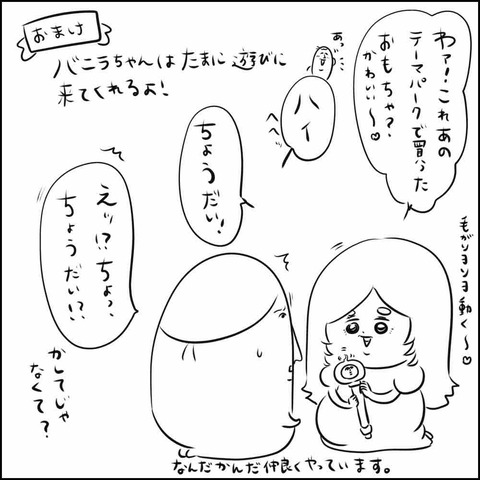 おまけ
バニラちゃんはたまに遊びに
来てくれるよ!
わァ!これあの
テーマパークで買った
おもちゃ?
かわいい〜♡
あっ
ハイ
へへっ
ちょうだい!
えッ!?ちょっ、
ちょうだい!?
かしてじゃ
なくて?
毛がソヨソヨ動く〜♡
なんだかんだ仲良くやっています。